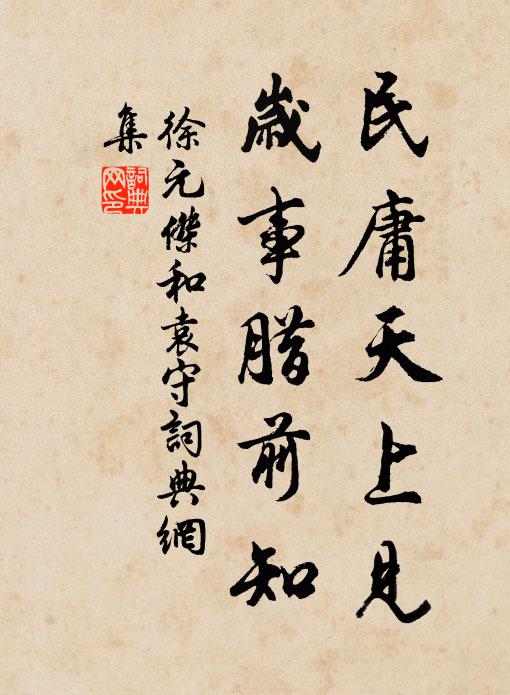 民庸天上見
歲事腊前知
徐元傑和袁守詞典網
集
詞典網印